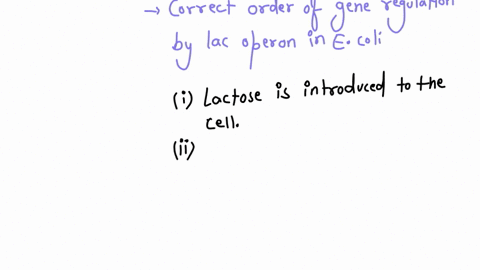 → Correct order of gene regulation
by lac operon in E.coli
(i) Lactose is introduced to the
cell.
(ii)